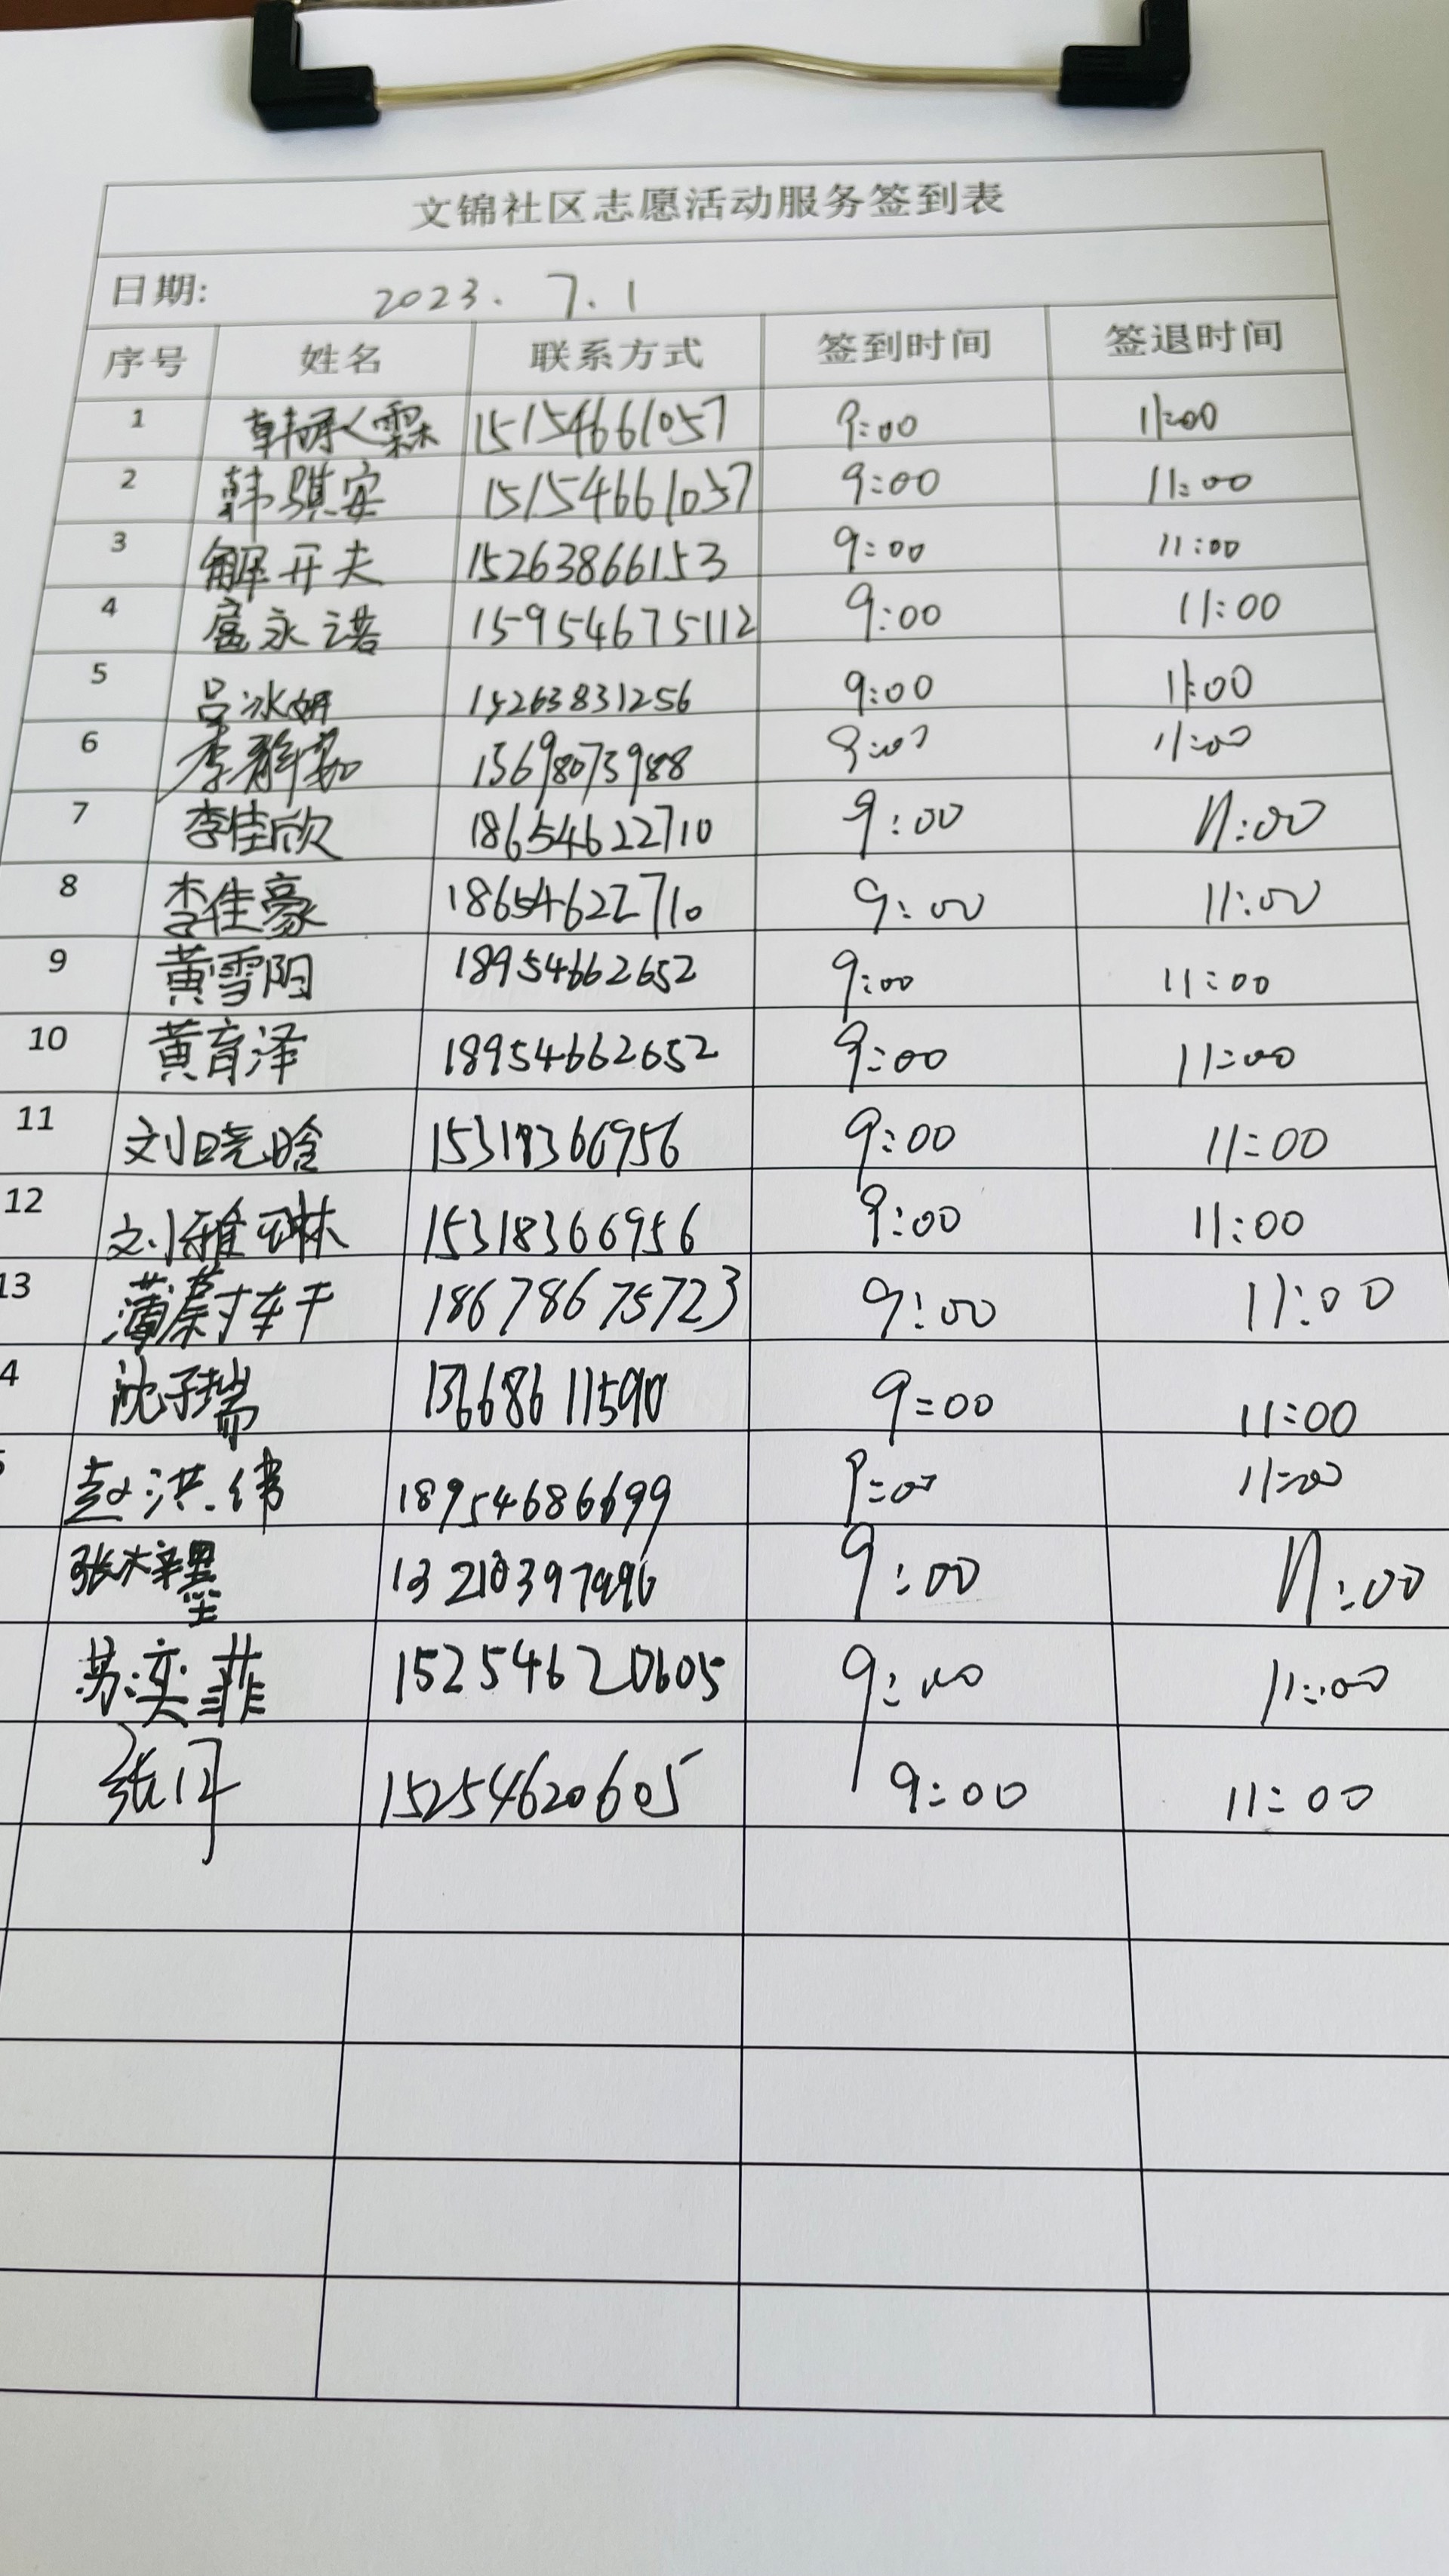 文锦社区志愿活动服务签到表
日期: 2023. 7. 1
序号 姓名 联系方式 签到时间 签退时间
1 韩承霖 15154661057 9:00 11:00
2 韩骐安 15154661057 9:00 11:00
3 解开夫 15263866153 9:00 11:00
4 扈永诺 15954675112 9:00 11:00
5 吕冰妍 15263831256 9:00 11:00
6 李静茹 13698073988 9:00 11:00
7 李佳欣 18654622710 9:00 11:00
8 李佳豪 18654622710 9:00 11:00
9 黄雪阳 18954662652 9:00 11:00
10 黄育泽 18954662652 9:00 11:00
11 刘晓晗 15318366956 9:00 11:00
12 刘雅琳 15318366956 9:00 11:00
13 薄蔚 18678675723 9:00 11:00
4 沈子瑞 13668611590 9:00 11:00
5 赵洪伟 18954686699 9:00 11:00
张梓墨 9:00 11:00
苏奕菲 15254620605 9:00 11:00
张 15254620605 9:00 11:00